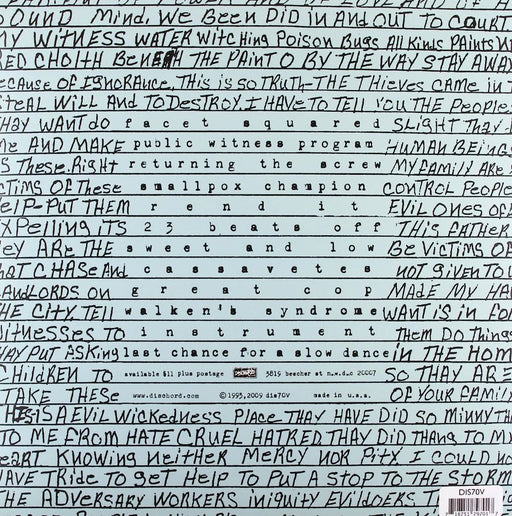 OUND MIND, WE BEEN DID IN AND OUT TO COURT
MY WITNESS WATER WITCHING POISON BUGS ALL KINDS PAINTS
RED CHOITH BENETH THE PAINT O BY THE WAY STAY AWAY
ECAUSE OF IGNORANCE, THIS IS SO TRUTH-THE THIEVES CAME IN T
STEAL WILL AND TO DESTROY. I HAVE TO TELL YOU THE PEOPLE
THAY WANT do facet squared SLIGHT THAY
ME AND MAKE public witness program HUMAN BEINGS
S THESE. RIGHT returning the screw MY FAMILY ARE
CTIMS OF THESE smallpox champion CONTROL PEOPLE
ELP-PUT THEM rend it EVIL ONES OF
XPELLING ITS 23 beats off THIS FATHER
EY ARE THE sweet and low BE VICTIMS OF
HAT CHASE AND cassavetes NOT GIVEN TO
LANDLORDS ON great cop MADE MY HA
THE CITY. TELL walken's syndrome WANT IS IN FO
WITNESSES TO instrument THEM DO THINGS
WAY PUT ASKING last chance for a slow dance IN THE HOM
CHILDREN TO available $11 plus postage DISCHORD 3819 beecher st n.w.d.c 20007 SO THAY ARE
TAKE THESE www.dischord.com ©1993,2009 dis70V made in u.s.a. OF YOUR FAMILY
THIS IS A EVIL WICKEDNESS PLACE THAY HAVE DID SO MINNY THA
TO ME FROM HATE CRUEL HATRED THAY DID THANG TO MY
HEART KNOWING NEITHER MERCY NOR PITY I COULD NO
HAVE TRIDE TO GET HELP TO PUT A STOP TO THE STORM
THE ADVERSARY WORKERS INIQUITY EVILDOERS
DIS70V